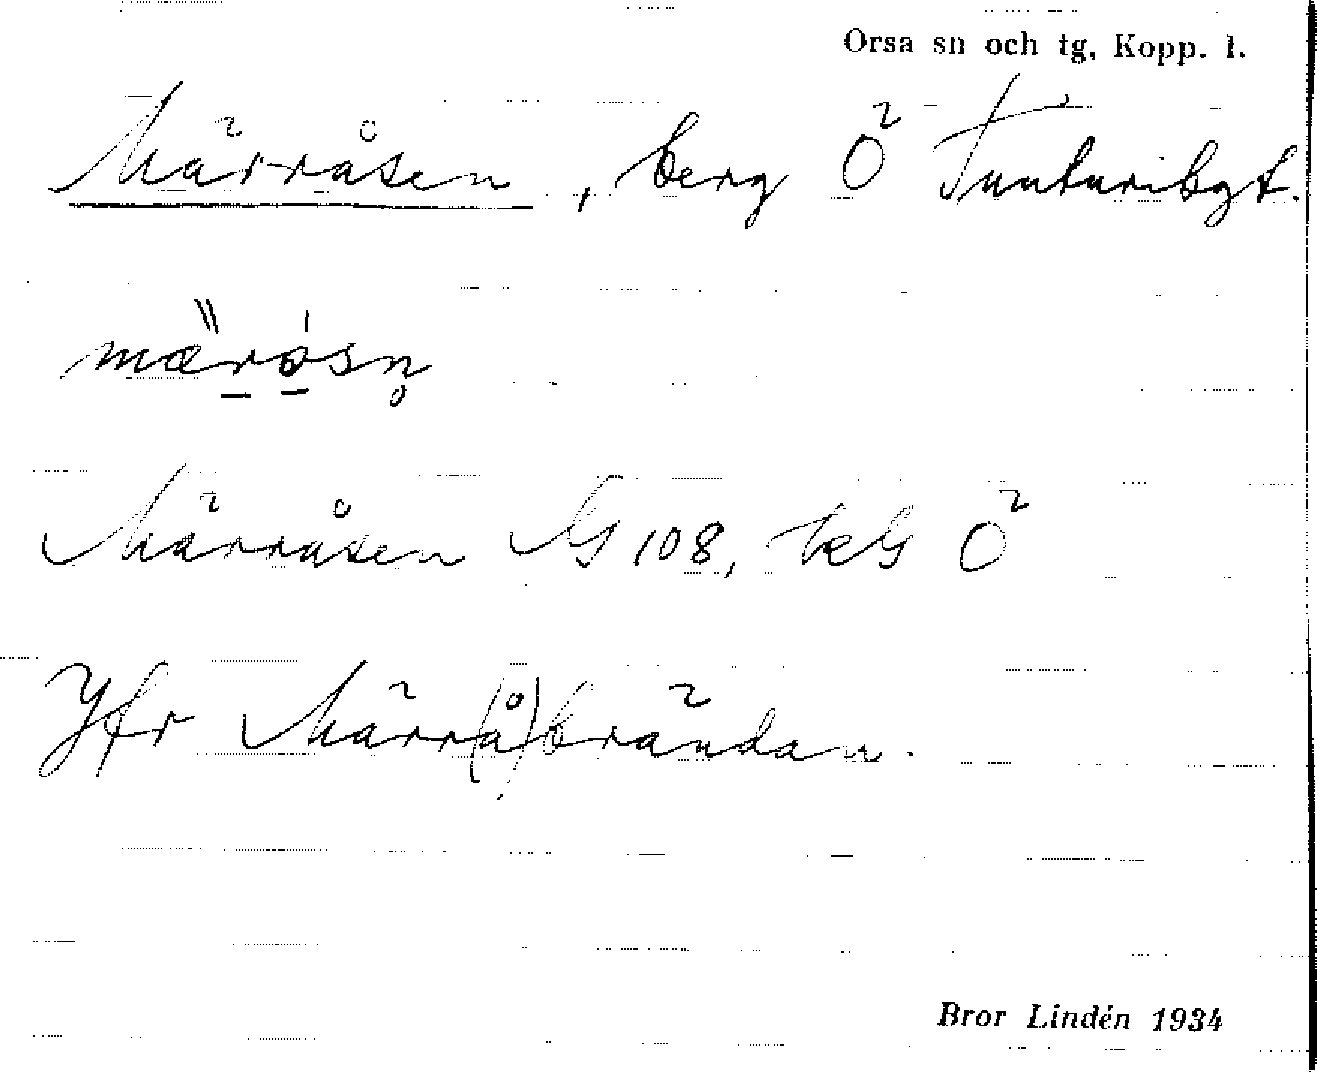 Orsa sn och tg, Kopp. l.
Märråsen, berg Ö Tunturibgt.
märåsn̥
Märråsen G 108, beG Ö
Jfr Märr(å)brändan.
Bror Lindén 1934